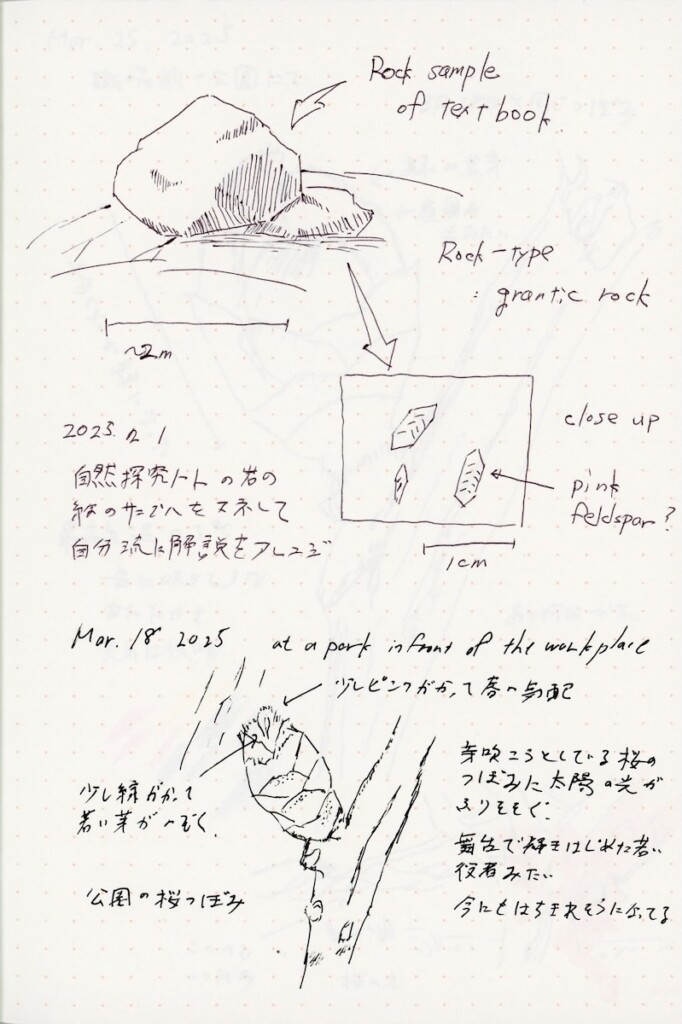 Rock sample
of text book
Rock-type
: grantic rock
~2m
close up
pink
feldspar?
1cm
2025. 2. 1
自然探究ノートの岩の
絵のサンプルをマネして
自分流に解説をアレンジ
Mar. 18 2025 at a park in front of the workplace
少しピンクがかって春の気配
少し緑がかって
若い芽がのぞく.
公園の桜つぼみ
芽吹こうとしている桜の
つぼみに太陽の光が
ふりそそぐ.
舞台で輝きはじめた若い
役者みたい
今にもはちきれそうになってる